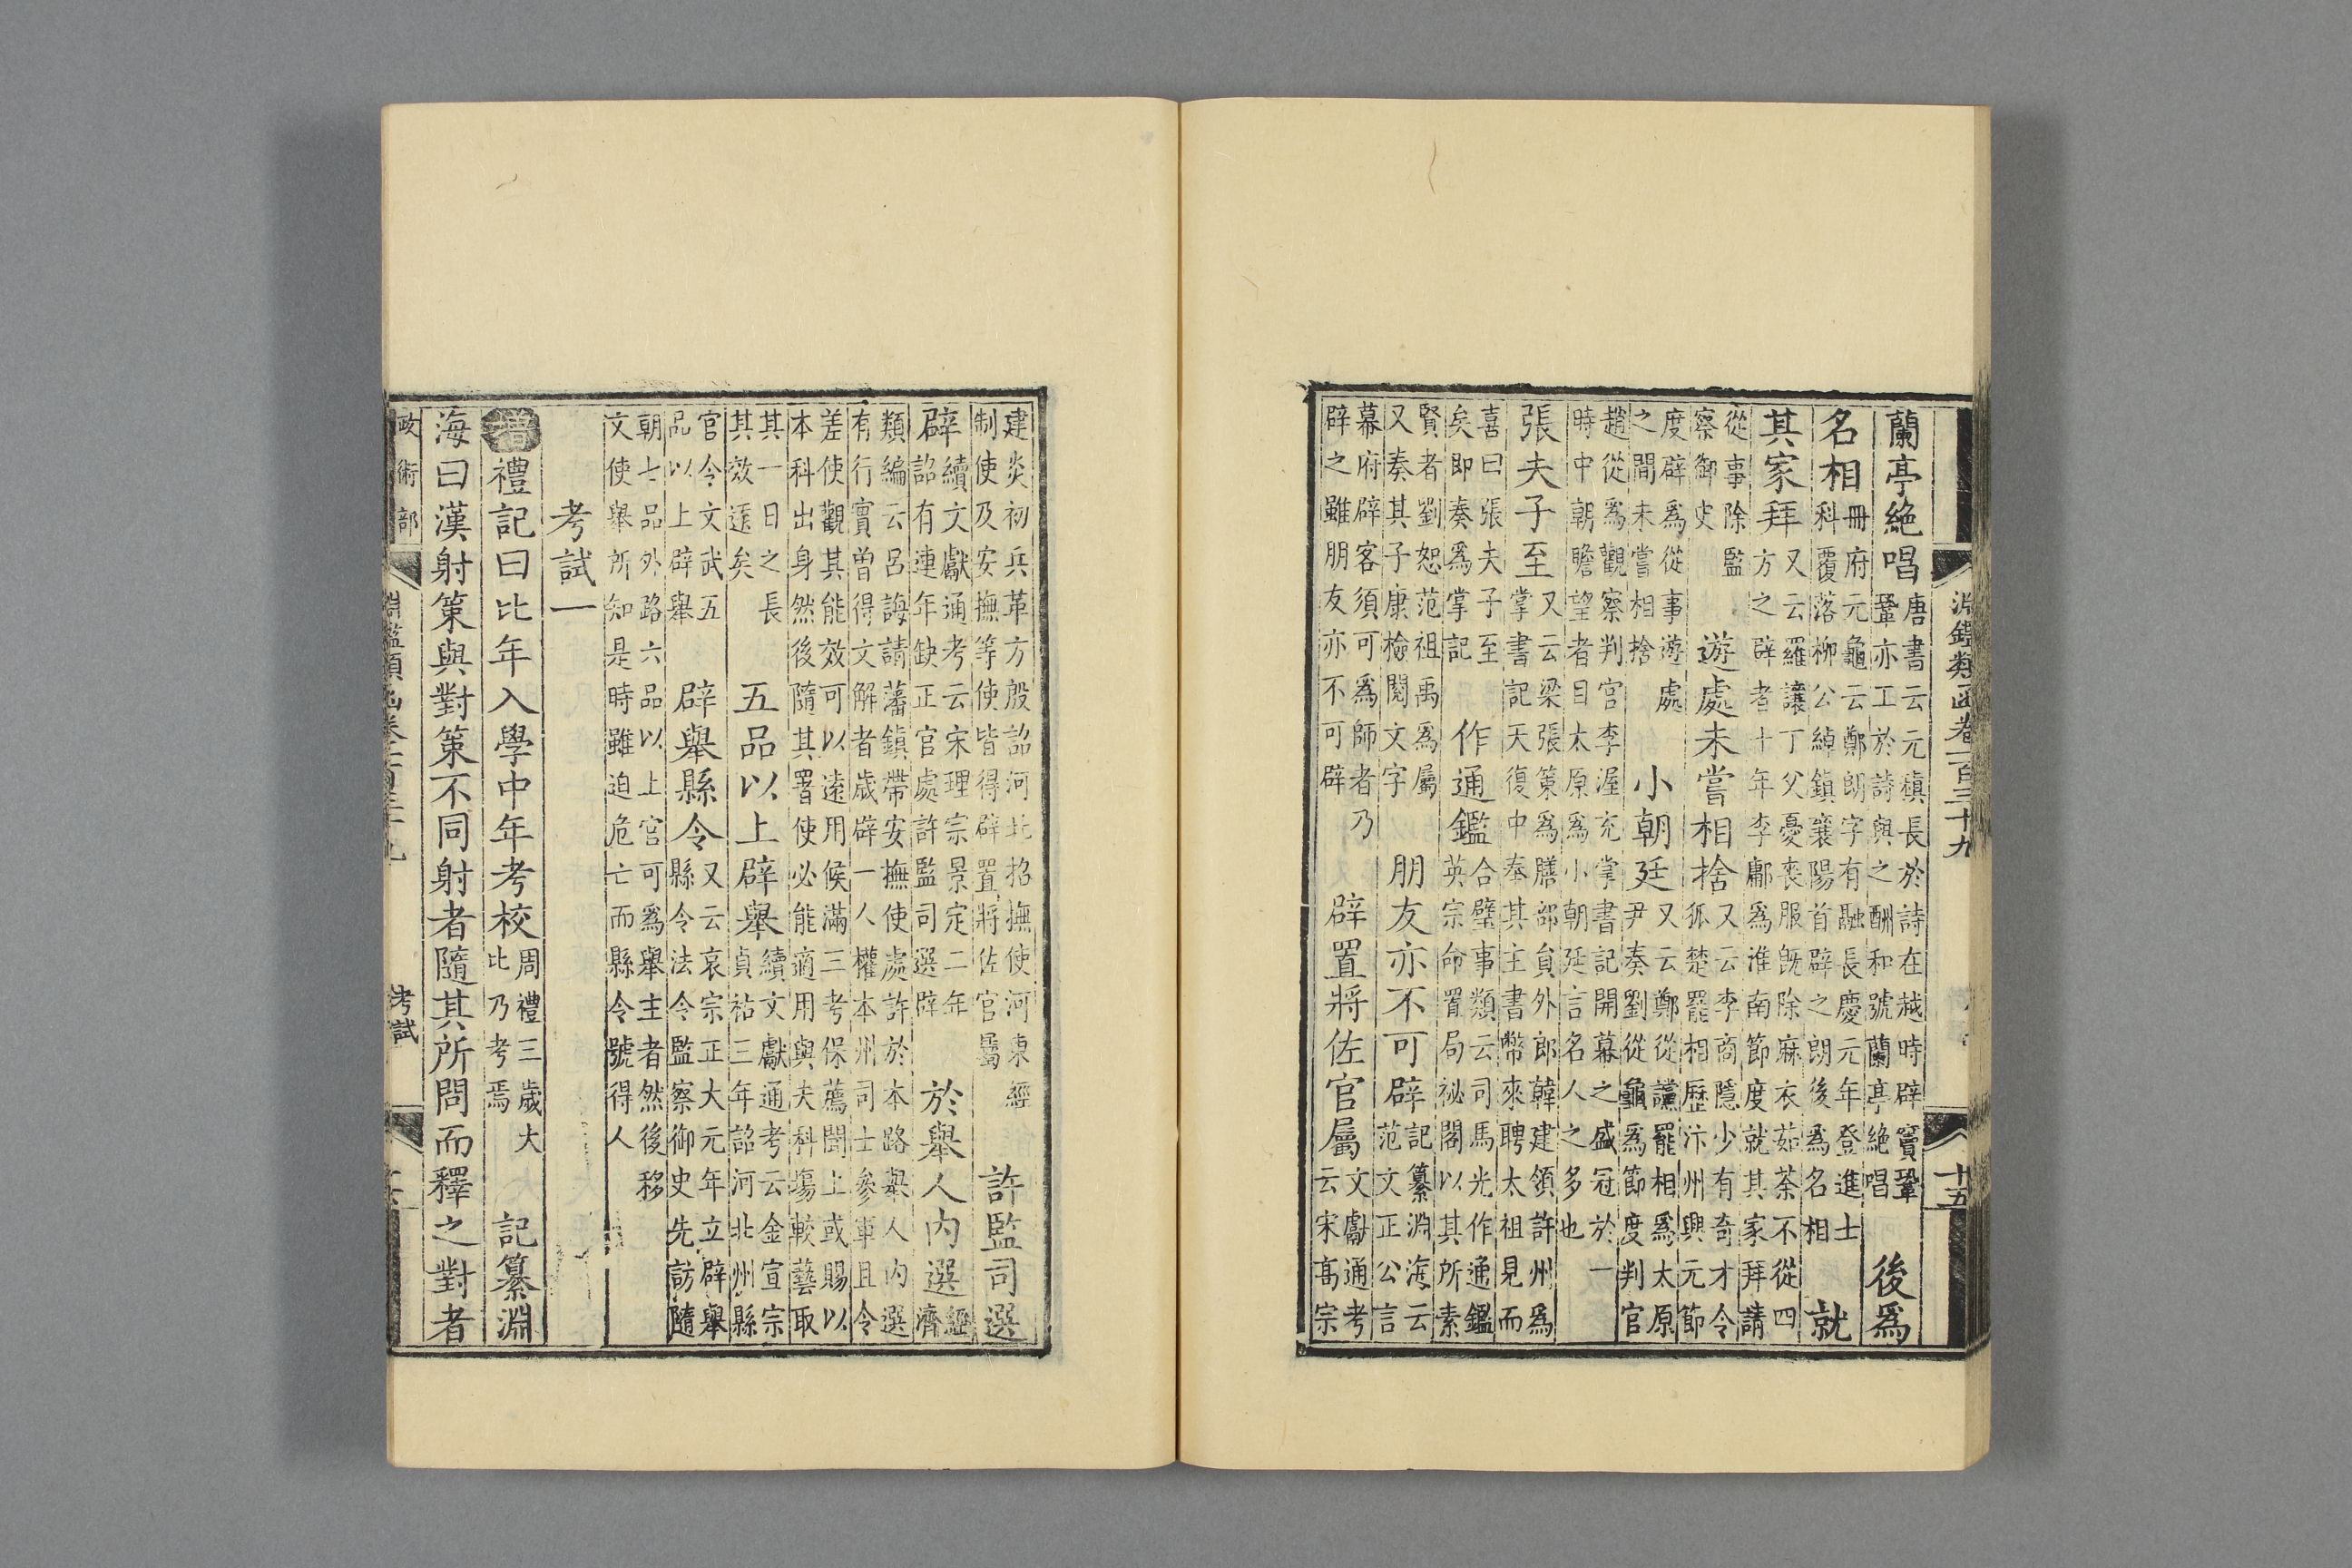 淵鑑類函卷一百三十九 十五
蘭亭絶唱 唐書云元稹長於詩在越時辟竇鞏鞏亦工於詩與之酬和號蘭亭絶唱 後爲
名相 冊府元龜云鄭朗字有融長慶元年登進士科覆落柳公綽鎮襄陽首辟之朗後爲名相 就
其家拜 又云羅讓丁父憂喪服既除麻衣茹荼不從四方之辟者十年李鄘爲淮南節度就其家拜請
從事除監察御史 遊處未嘗相捨 又云李商隱少有奇才令狐楚罷相歷汴州興元節
度辟爲從事遊處之間未嘗相捨 小朝廷 又云鄭從讜罷相爲太原尹奏劉從龜爲節度判官
趙從爲觀察判官李渥充掌書記開幕之盛冠於一時中朝瞻望者目太原爲小朝廷言名人之多也
張夫子至 又云梁張策爲膳部員外郎韓建領許州爲掌書記天復中奉其主書幣來聘太祖見而
喜曰張夫子至矣即奏爲掌記 作通鑑 合璧事類云司馬光作通鑑英宗命置局祕閣以其所素
賢者劉恕范祖禹爲屬又奏其子康檢閱文字 朋友亦不可辟 記纂淵海云范文正公言
幕府辟客須可爲師者乃辟之雖朋友亦不可辟 辟置將佐官屬 文獻通考云宋高宗
建炎初兵革方殷詔河北招撫使河東經制使及安撫等使皆得辟置將佐官屬 許監司選
辟 續文獻通考云宋理宗景定二年詔有連年缺正官處許監司選辟 於舉人内選 經濟
類編云呂誨請藩鎮帶安撫使處許於本路舉人内選有行實曾得文解者歲辟一人權本州司士參軍且令
差使觀其能效可以遠用候滿三考保薦聞上或賜以本科出身然後隨其署使必能適用與夫科場較藝取
其一日之長其效遥矣 五品以上辟舉 續文獻通考云金宣宗貞祐三年詔河北州縣
官令文武五品以上辟舉 辟舉縣令 又云哀宗正大元年立辟舉縣令法令監察御史先訪隨
朝七品外路六品以上官可爲舉主者然後移文使舉所知是時雖迫危亡而縣令號得人
考試一
增 禮記曰比年入學中年考校 周禮三歲大比乃考焉 記纂淵
海曰漢射策與對策不同射者隨其所問而釋之對者
政術部 淵鑑類函卷一百三十九 考試